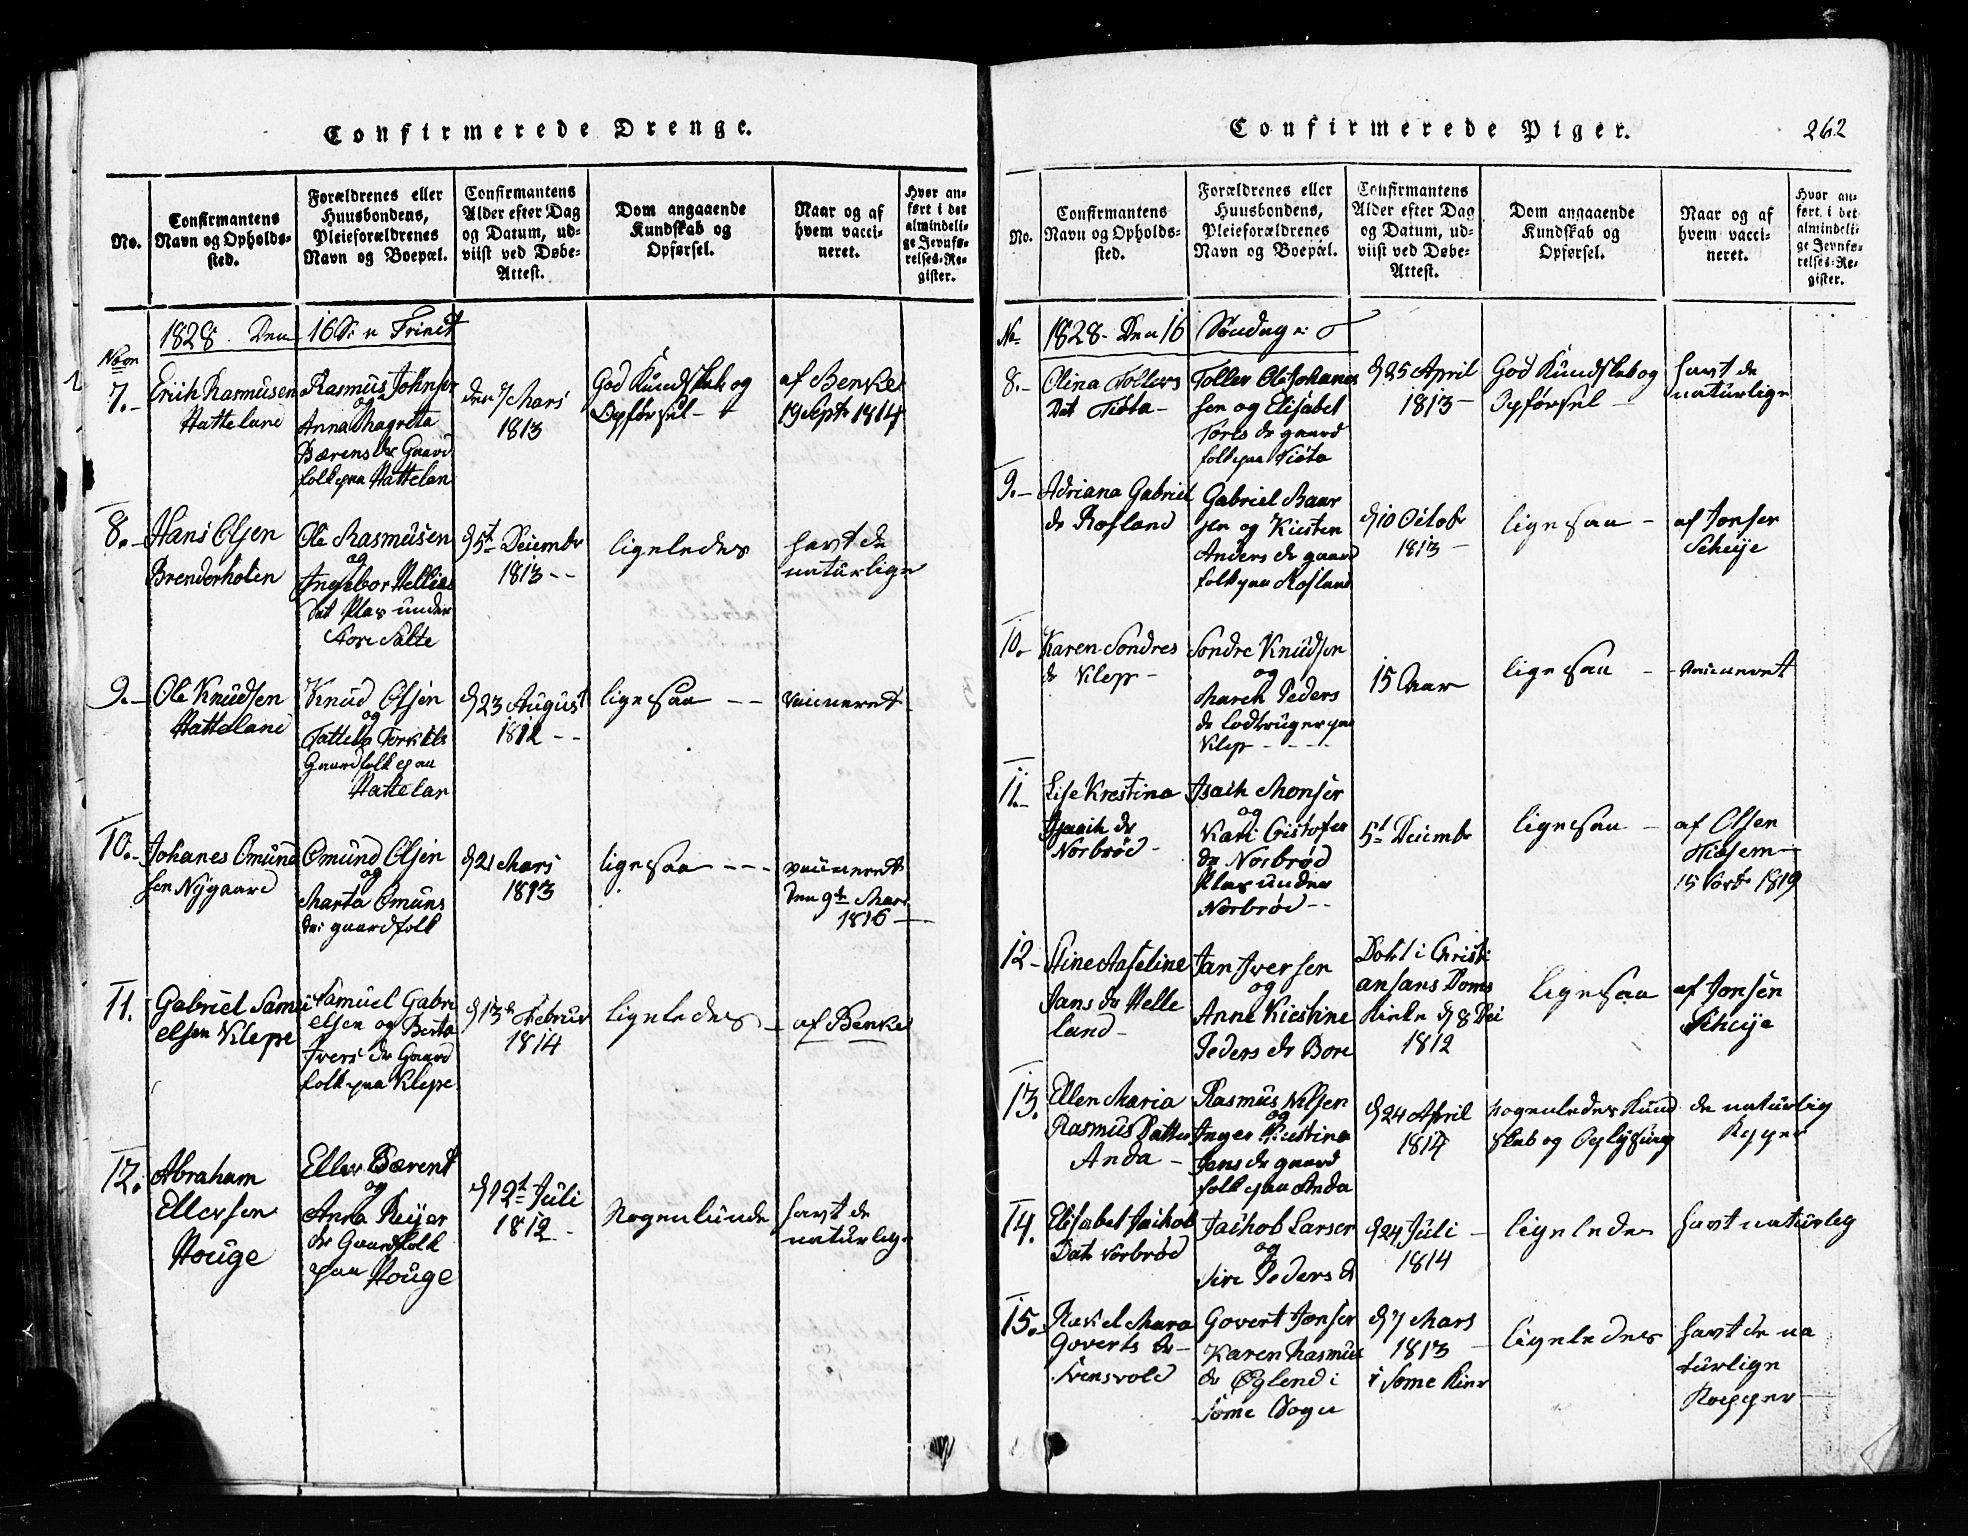 Confirmerede Drenge.
No.
Confirmantens
Navn og Opholds-
sted.
Forældrenes eller
Huusbondens,
Pleieforældrenes
Navn og Boepæl.
Confirmantens
Alder efter Dag
og Datum, ud-
viist ved Døbe-
Attest.
Dom angaaende
Kundskab og
Opførsel.
Naar og af
hvem vacci-
neret.
Hvor an-
ført i det
almindeli-
ge Jevnfø-
relses-Re-
gister.
1828. Den 16 S: n Trinit
7.-
Erich Rasmusen
Hatteland
Rasmus Johnsen
og
Anna Magreta
Bærens dr Gaard
folk paa Hattelan
den 7 Mars
1813
God Kundskab og
Opførsel -
af Benke
19 Septr 1814
8.-
Hans Olsen
Brenderhoien
Ole Rasmusen
og
Ingebor Hellies
dat Plas under
Store Salte
d 5t Decembr
1813 --
ligeledes
havt de
naturlige
9.-
Ole Knudsen
Hatteland
Knud Olsen
og
Torkels
Gaardfolk paa
Hattelan
d 23 August
1812 --
ligesaa --
vaccineret
10.-
Johanes Omund
sen Nygaard
Omund Olsen
og
Marta Omuns
dr gaardfolk
d 21 Mars
1813
ligesaa ---
vaccineret
den 9de Mars
1816
11.
Gabriel Samu
elsen Klepe
Samuel Gabri
elsen og Berta
Ivers dr Gaard
folk paa Klepe
d 13de Februr
1814
ligeledes -
af Benke
12.
Abraham
Ellersen
Houge
Eller Bærent
og
Anna Reijer
dr Gaardfolk
paa Houge
d 12t Juli
1812 -
Nogenlunde
havt de
naturlige
Confirmerede Piger.
262
No.
Confirmantens
Navn og Opholds-
sted.
Forældrenes eller
Huusbondens,
Pleieforældrenes
Navn og Boepæl.
Confirmantens
Alder efter Dag
og Datum, ud-
viist ved Døbe-
Attest.
Dom angaaende
Kundskab og
Opførsel.
Naar og af
hvem vacci-
neret.
Hvor an-
ført i det
almindeli-
ge Jevnfø-
relses-Re-
gister.
No 1828. Den 16 Søndag n:
8.-
Olina Tollevs
Dat Tiøta -
Tollev Ole Johanes
sen og Elisabet
Tores dr gaard
folk paa Tiøta
d 25 April
1813 -
God Kundskab og
Opførsel -
havt de
naturlige
9.-
Adriana Gabriel
dr Rosland
Gabriel Baar
sen og Kiesten
Anders dr gaard
folk paa Rosland
d 10 Octobr
1813 -
ligesaa -
af Jonsen
Scheije
10.-
Karen Sondres
dr Klep -
Sondre Knudsen
og
Maren Peders
dr paa
Klep ----
15 Aar
ligesaa -
vaccineret
11.-
Lise Krestina
Isach dr
Norbrød -
Isach Monsen
og
Kari Cistofer
dr Norbrød
Plas under
Norbrød --
5t Decembr
ligesaa -
af Olsen
15 1819
12-
Stine Aaseline
Jans dr Helle
land -
Jan Iversen
og
Anne Kiestine
Peders dr Bore
Døbt i Christi
ansans Doms
Kirke d 8 Dei
1812
ligesaa
af Jonsen
Scheije
13.
Ellen Maria
Rasmus Datter
Anda -
Rasmus Nilsen
og
Inger Kiestina
Jans dr gaard
folk paa Anda
d 24 April
1814
nogenledes Kund
skab og Oplysning
de naturlig
Kopper
14.
Elisabet Jachob
Datr Norbrød
Jachob Larsen
og
Sire Peders dr
d 24 Juli -
1814
ligeledes
havt naturlig
15.-
Rakel Mara
Goverts dr -
Svensvold
Govert Jonsen
Karen Rasmus
dr Øglend i
Some Sogn
d 7 Mars
1813 -
i Some Kirk
ligeledes
havt de na
turlige
Kopper -